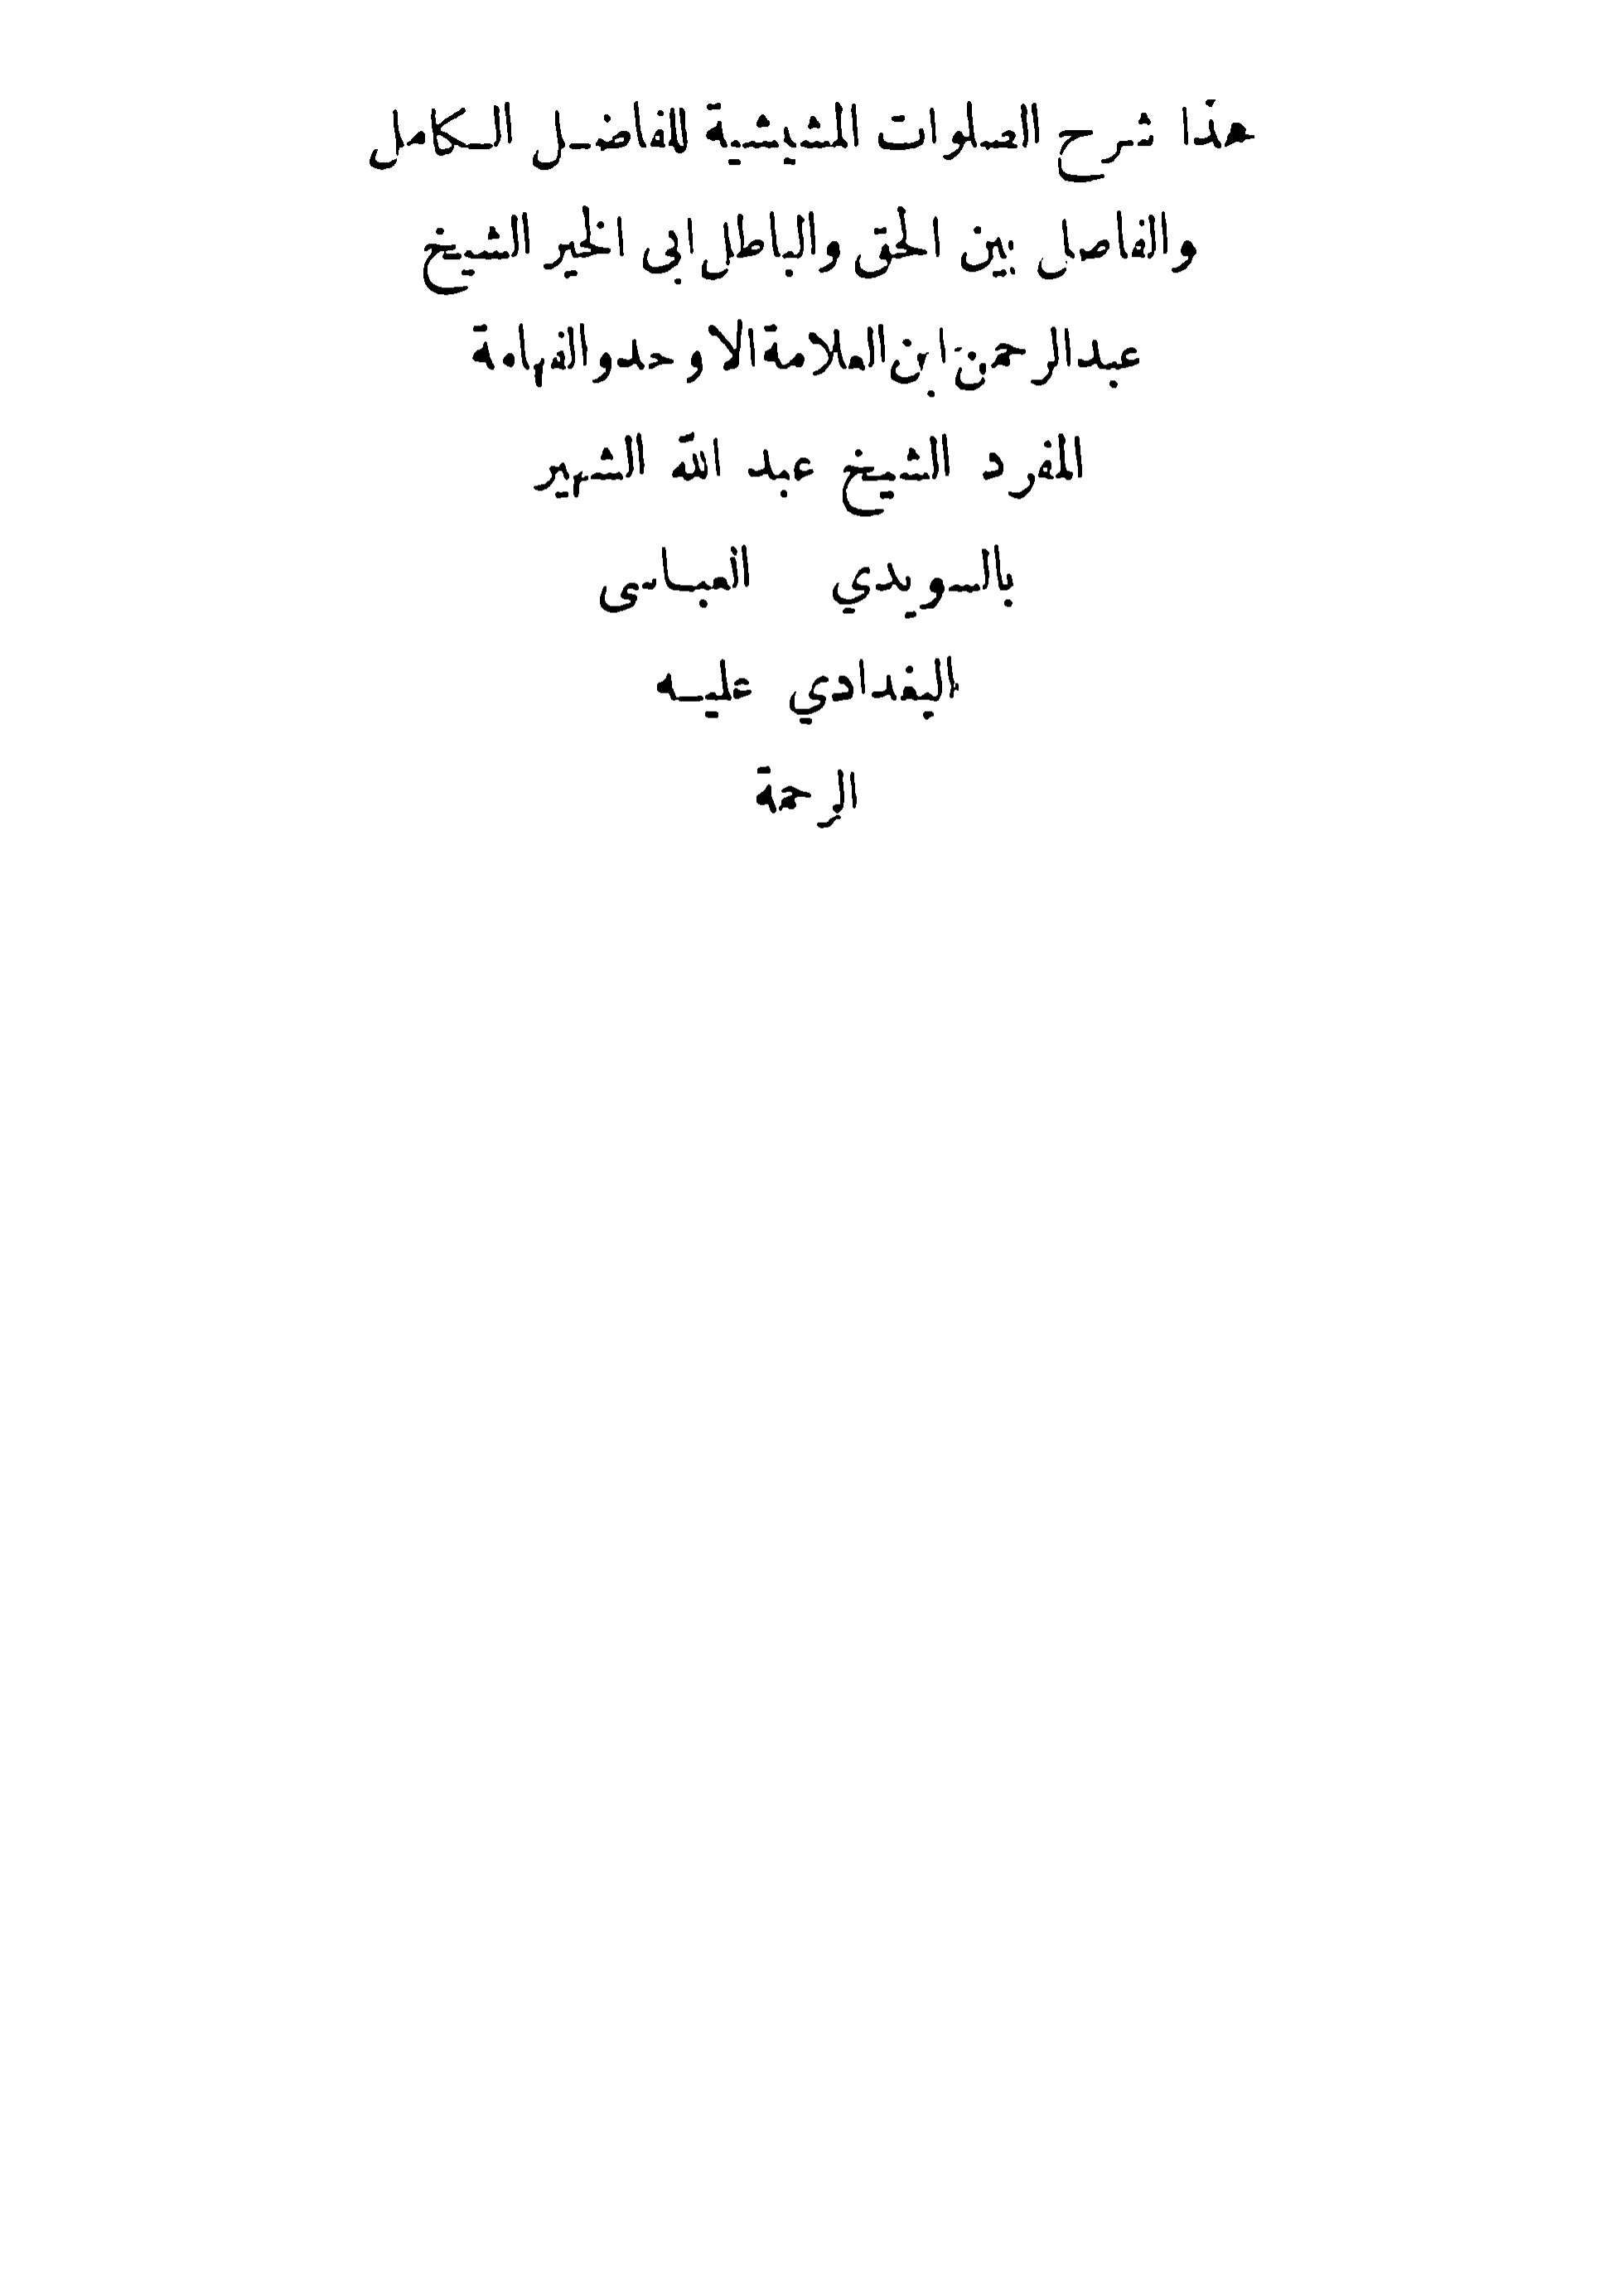 هذا شرح الصلوات المشيشية للفاضل الكامل
والفاصل بين الحق والباطل ابى الخير الشيخ
عبدالرحمن ابن العلامة الاوحد والفهامة
المفرد الشيخ عبد الله الشهير
بالسويدي العباسى
البغدادي عليه
الرحمة